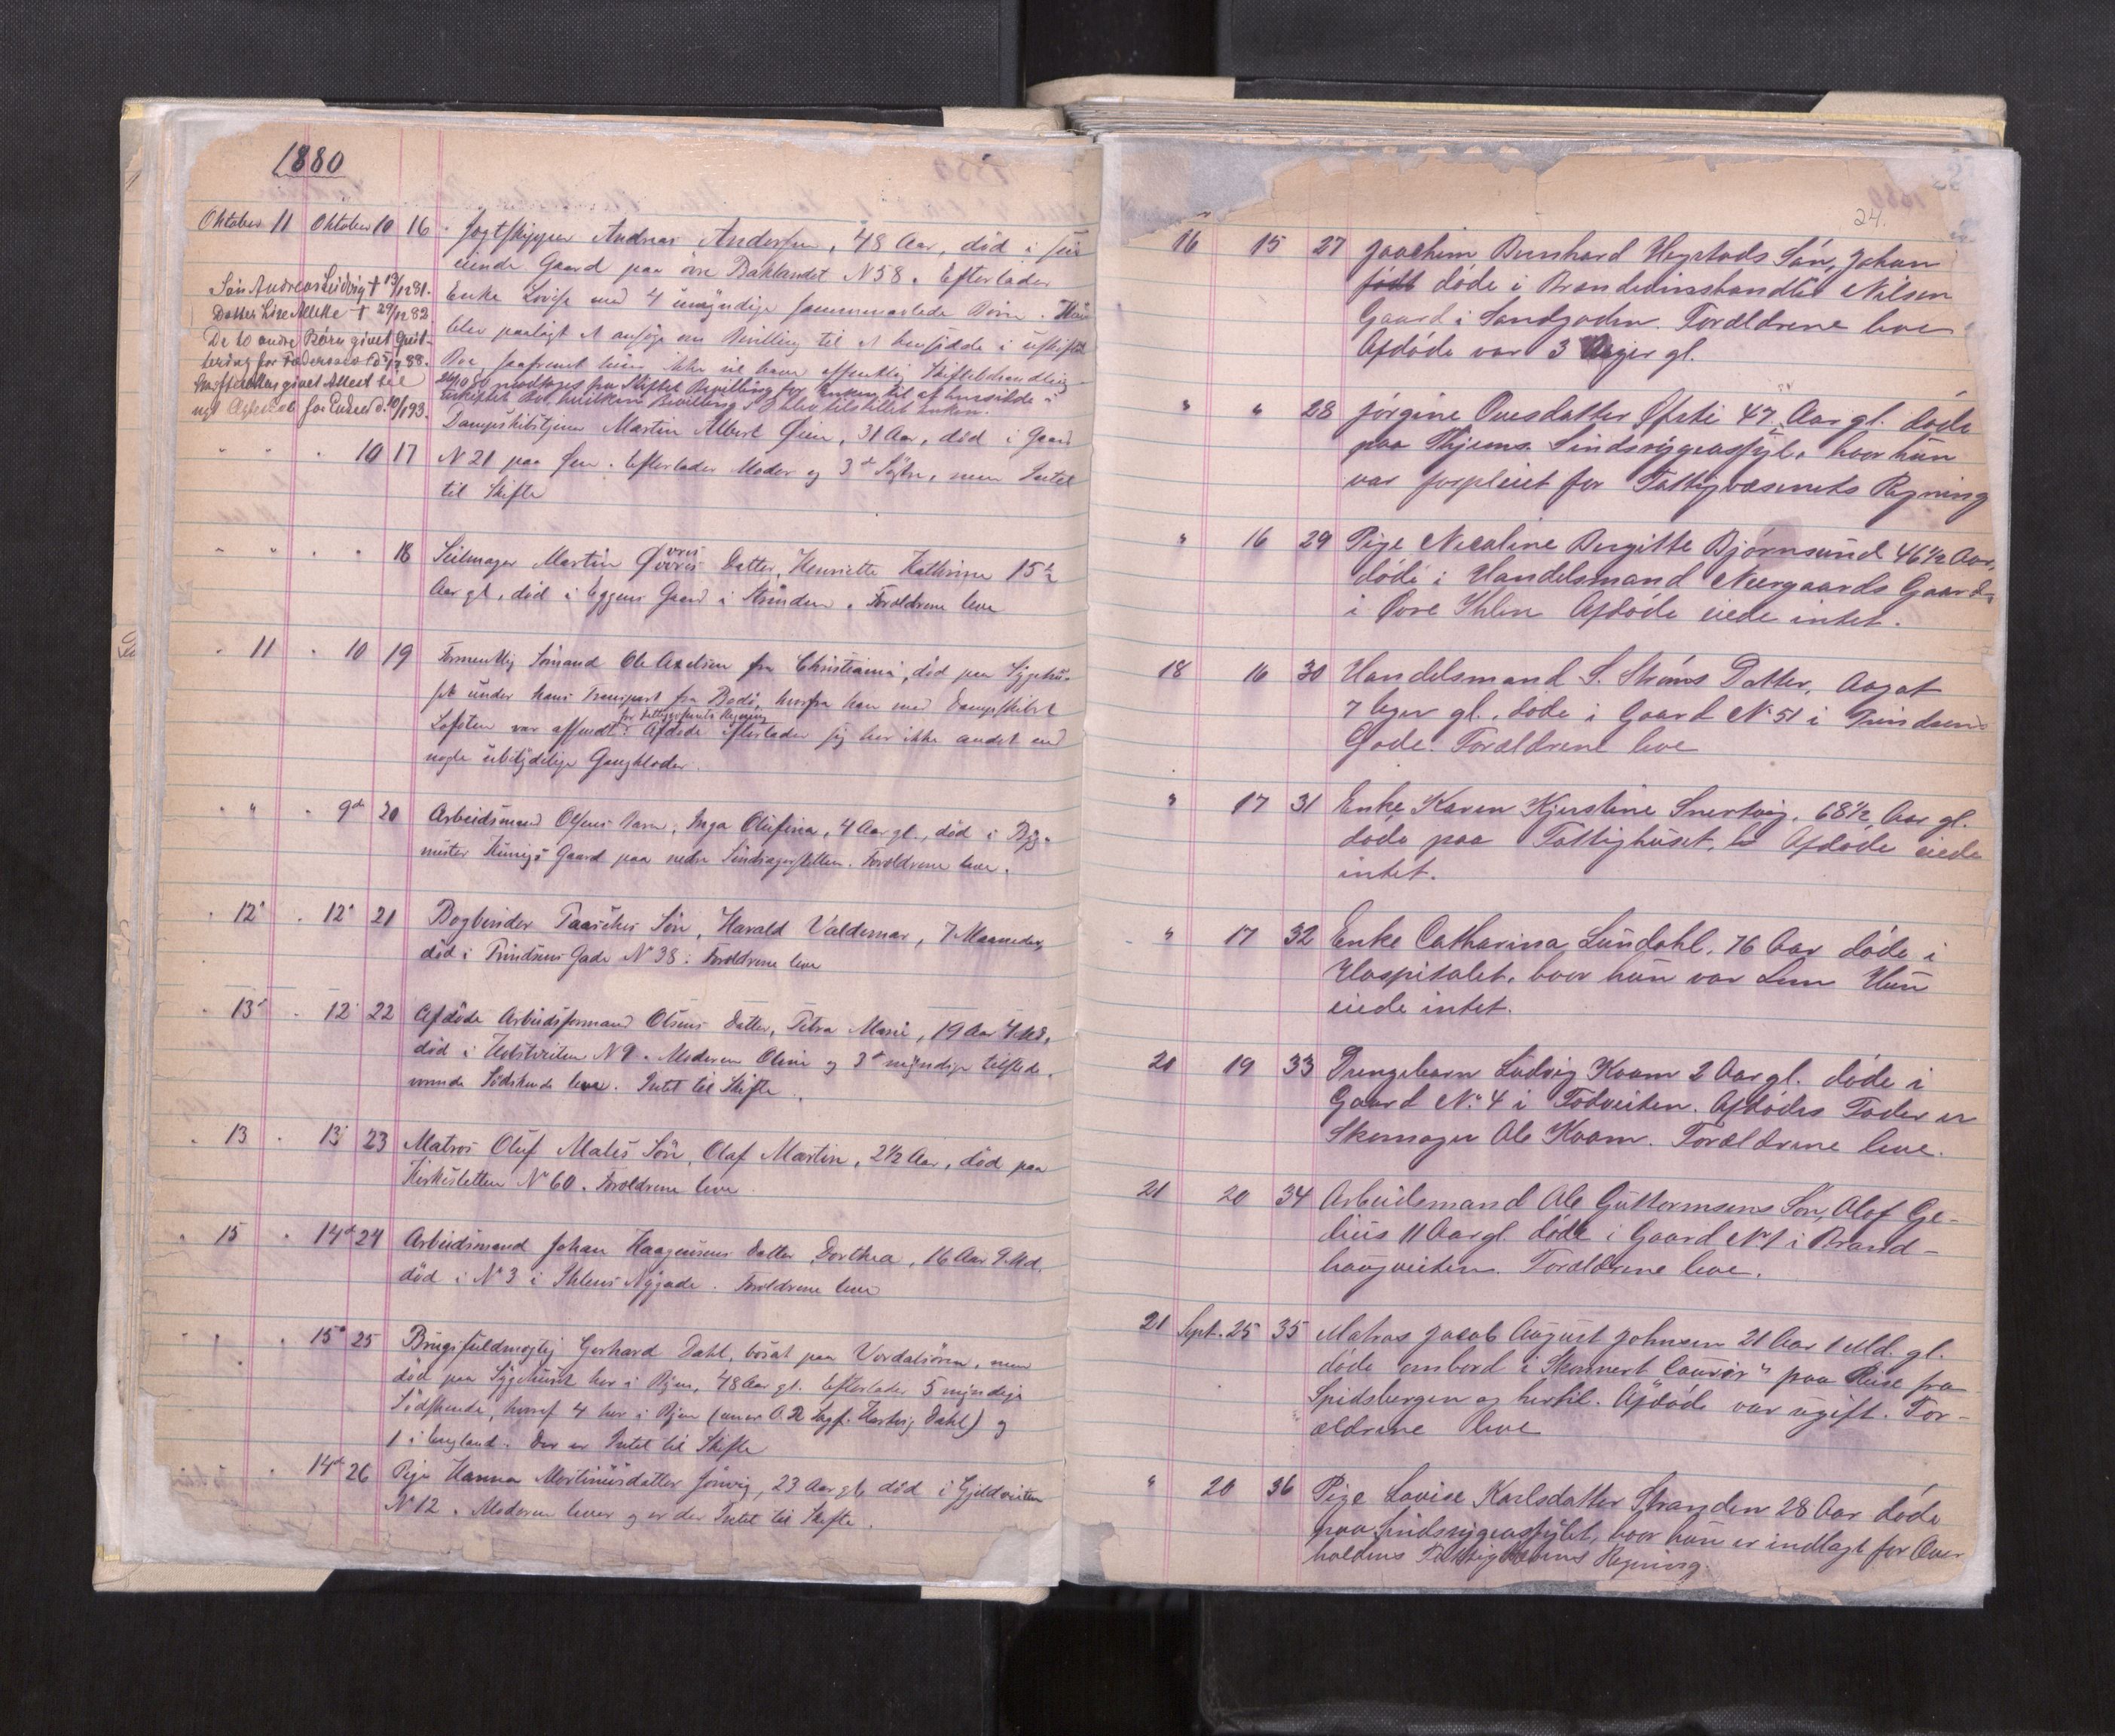 1880
Oktober 11 Oktober 10 16 Jagtskipper Andreas Andersen, 48 Aar, död i sin
eiende Gaard paa övre Baklandet N 58. Efterlader
Enke Lovise med 4 umyndige sammenavlede Börn. Hun
blev paalagt at ansöge om Bevilling til at hensidde i uskiftet
Bo saafremt hun ikke vil have offentlig Skiftebehandling
modtages fra Stiftet Bevilling for Enken til at hensidde i
uskiftet Bo, hvilken Bevilling blev tilstillet Enken.
Sön Andreas Ludvig † 13/12 81.
Datter Lise Mette † 29/12 82
De to andre Börn givet Qvit-
tering for Fædrenearv 88.
givet Attest til
for Enken d. 10/1 93.
" " " 10 17 Dampskibstjener Martin Albert Öien, 31 Aar, död i Gaard
N 21 paa Öen. Efterlader Moder og 3 Söstre, men Intet
til Skifte
" " " " 18 Seilmager Martin Datter, Henriette Kathrine 15 1/2
Aar gl, död i Eggens Gaard i Strinden. Forældrene leve
" 11 " 10 19 Formentlig Sömand Ole Axelsen fra Christiania, död paa Sygehu-
set under hans Transport fra Bodö, hvorfra han med Dampskibet
Lofoten var afsendt for Fattigvæsenets Regning. Afdöde efterlader sig her ikke andet end
nogle ubetydelige Gangklæder.
" " " 9de 20 Arbeidsmand Olsens Barn, Inga Olufina, 4 Aar gl., död i Byg-
mester Gaard paa nedre. Forældrene leve.
" 12 " 12 21 Bogbinder Paasches Sön, Harald Valdemar, 7 Maaneder,
död i Prindsens Gade N 38. Forældrene leve
" 13 " 12 22 Afdöde Arbeidsformand Olsens Datter, Petra Marie, 19 Aar 4 Md,
död i N 9. Moderen Oline og 3 myndige tilstede-
værende Södskende leve. Intet til Skifte.
" 13 " 13 23 Matros Oluf Males Sön, Olaf Martin, 2 1/2 Aar, död paa
Kirkesletten N 60. Forældrene leve.
" 15 " 14de 24 Arbeidsmand Johan Haagensens Datter Dorthea, 16 Aar 9 Md.
död i N 3 i Ihlens Nygade. Forældrene leve
" " " 15 25 Brugsfuldmægtig Gerhard Dahl, bosat paa Verdalsören, men
död paa Sygehuset her i Byen, 48 Aar gl. Efterlader 5 myndige
Södskende, hvoraf 4 her i Byen (Hartvig Dahl) og
1 i England. Der er Intet til Skifte
" 14de 26 Pige Hanna Martinusdatter Jönvig, 23 Aar gl. död i Gjeldveiten
N 12. Moderen lever og er der Intet til Skifte.
24.
16 15 27 Joachim Bernhard Hegstads Sön, Johan
födt döde i Brændevinshandler Nilsens
Gaard i Sandgaden. Forældrene leve
Afdöde var 3 Uger gl.
" " 28 Jörgine Onesdatter Ofsti 47 Aar gl. döde
paa Thjems. Sindssygeasyl. hvor hun
var forpleiet for Fattigvæsenets Regning
" 16 29 Pige Nicoline Birgitte Björnsund 46 1/2 Aar,
döde i Handelsmand Neergaards Gaard
i Övre Ihlen Afdöde eiede intet.
18 16 30 Handelsmand S. Ströms Datter, Aagot
7 Uger gl., döde i Gaard No 51 i Prindsens
Gade. Forældrene leve
" 17 31 Enke Karen Kjerstine Snertvig, 68 1/2 Aar gl.
döde paa Fattighuset. Afdöde eiede
intet.
" 17 32 Enke Catharina Lundahl, 76 Aar döde i
Hospitalet, hvor hun var Lem Hun
eiede intet.
20 19 33 Drengebarn Ludvig Kvam 2 Aar gl. döde i
Gaard No 4 i Fodveiten. Afdödes Fader er
Skomager Ole Kvam. Forældrene leve.
21 20 34 Arbeidsmand Ole Guttormsens Sön, Olaf Ge-
lius 11 Aar gl. döde i Gaard No 1 i Brand-
haugveiten. Forældrene leve.
21 Sept. 25 35 Matros Jacob August Johnsen 21 Aar 1 Md. gl.
döde ombord i Skonnert "" paa Reise fra
Spidsbergen og hertil. Afdöde var ugift. For-
ældrene leve
" 20 36 Pige Lovise Karlsdatter Stranden 28 Aar döde
paa Sindssygeasylet, hvor hun er indlagt for Over
haldens Fattigvæsens Regning.